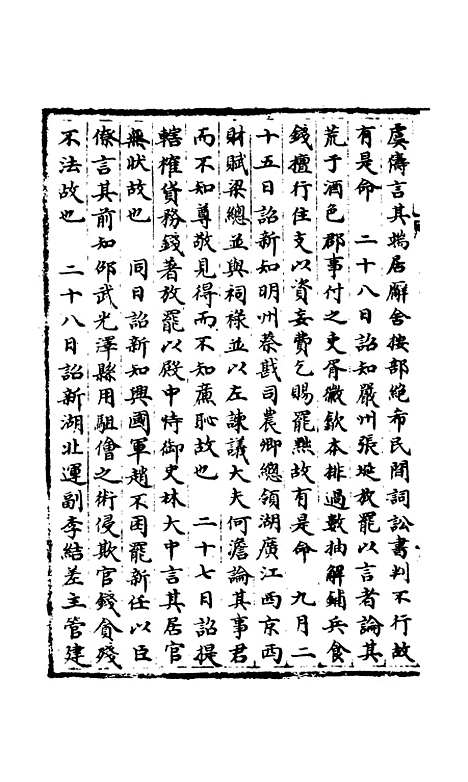 虞儔言其端居廨舍按部絕希民間詞訟書判不行故
有是命　二十八日詔知嚴州張埏放罷以言者論其
荒于酒色郡事付之吏胥徵歛本排過數抽解鋪兵食
錢櫃行住支以資妄費乞賜罷黜故有是命　九月二
十五日詔新知明州蔡戡司農卿總領湖廣江西京西
財賦梁總並與祠祿並以左諫議大夫何澹論其事君
而不知尊敬見得而不知廣恥故也　二十七日詔提
轄榷貨務錢著放罷以殿中侍御史林大中言其居官
無狀故也　同日詔新知興國軍趙不困罷新任以臣
僚言其前知邵武光澤縣用駔儈之術侵欺官錢貪殘
不法故也　二十八日詔新湖北運副李結差主管建